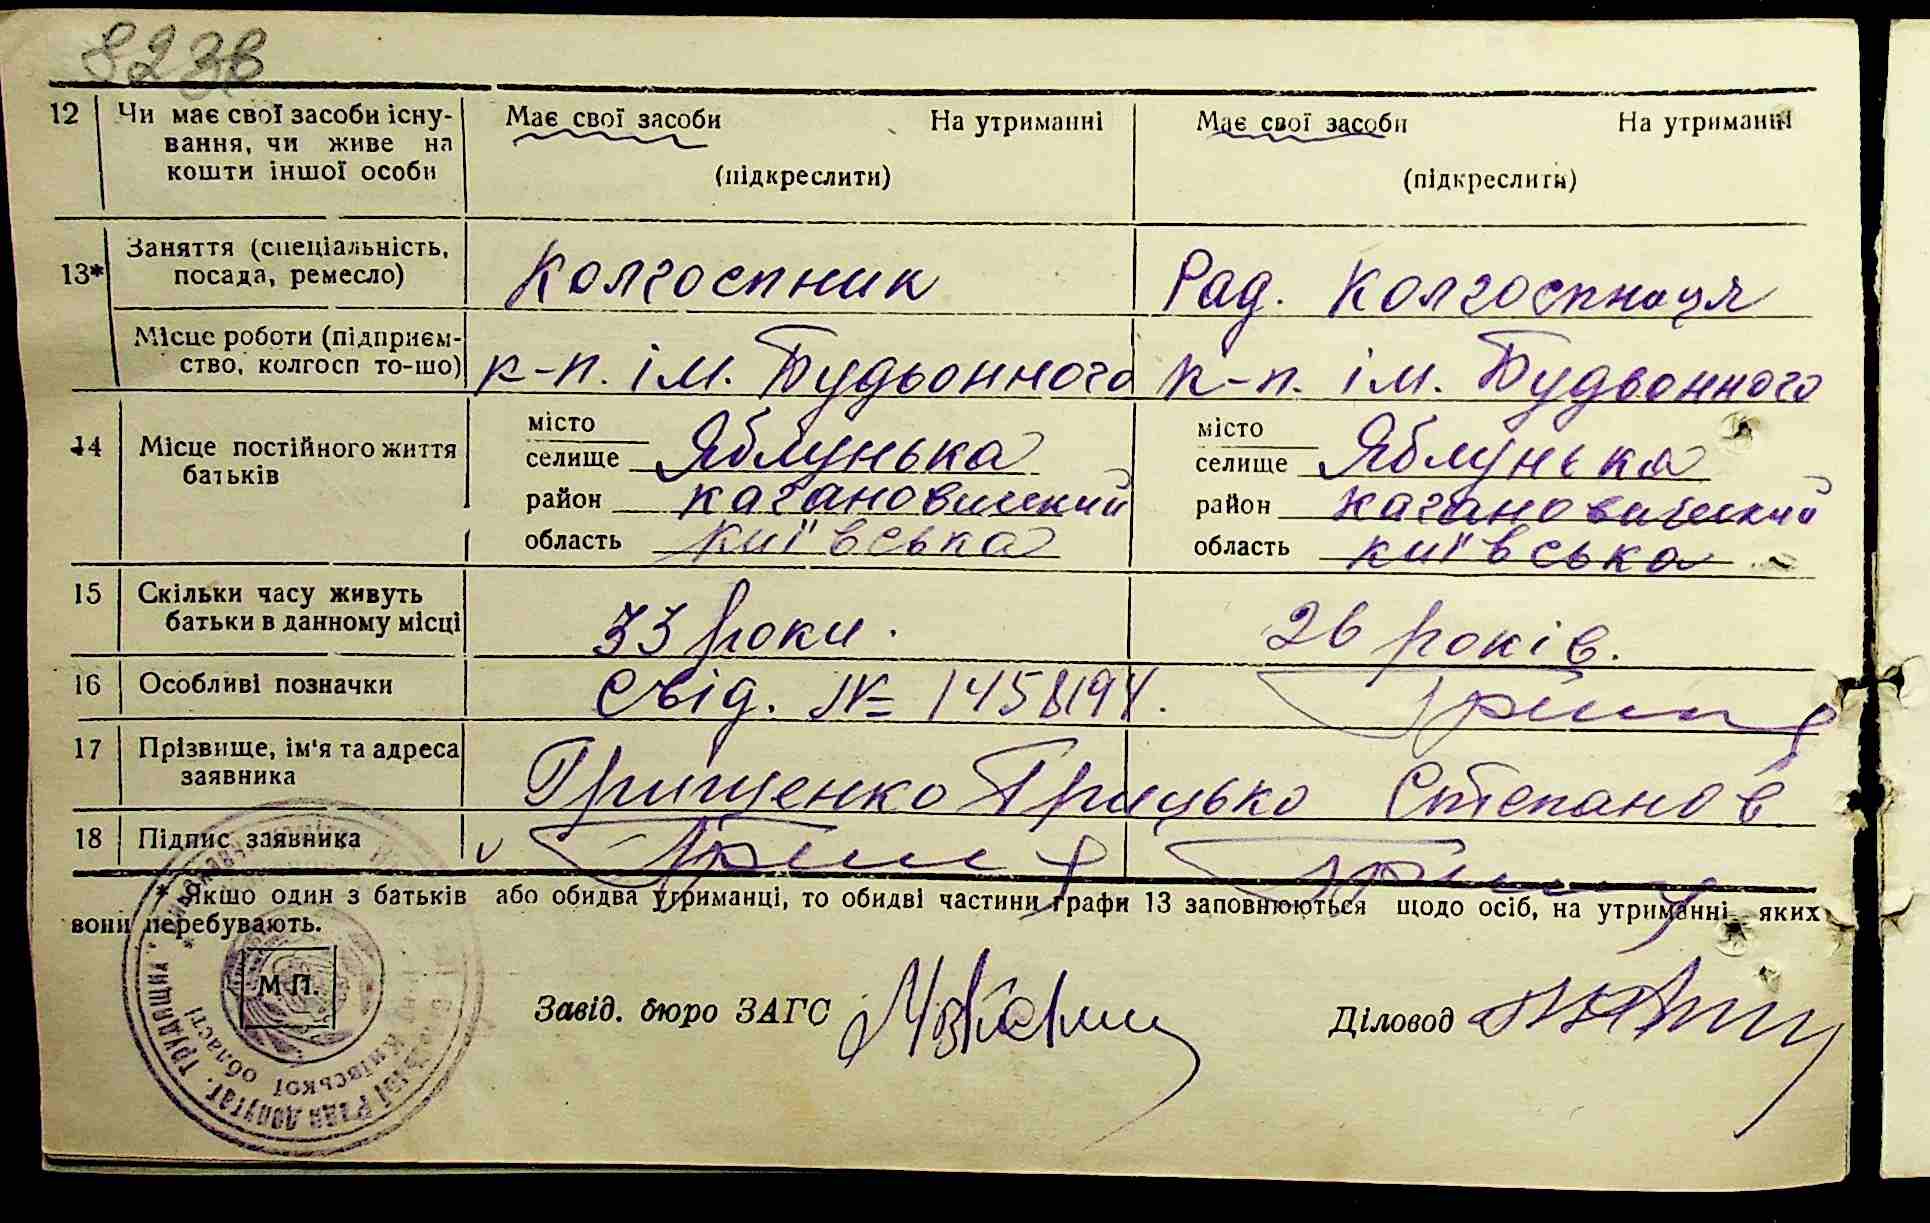 823в
12 Чи має свої засоби існу- Має свої засоби На утриманні Має свої засоби На утриманні
вання, чи живе на
кошти іншої особи (підкреслити) (підкреслить)
13* Заняття (спеціальність, Колгоспник Рад. Колгоспниця
посада, ремесло)
Місце роботи (підприєм- к-п. ім. Будьонного к-п. ім. Будьонного
ство, колгосп то-що)
14 Місце постійного життя місто місто
батьків селище Яблунька селище Яблунька
район кагановицький район кагановицький
область київська область київська
15 Скільки часу живуть 33 роки. 26 років.
батьки в данному місці
16 Особливі позначки Свід. № 1458194.
17 Прізвище, ім'я та адреса Грищенко Грицько Степанов
заявника
18 Підпис заявника
* Якшо один з батьків або обидва утриманці, то обидві частини графи 13 заповнюються щодо осіб, на утриманні яких
вони перебувають.
М П.
Завід. бюро ЗАГС Діловод
Рада депутат. трудящих
Київської області